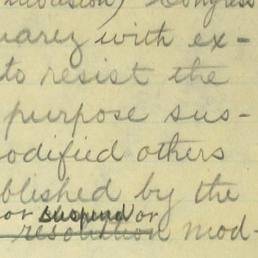 invasion) Congress
uarez with ex-
to resist the
purpose sus-
odified others
blished by the
or suspend or
resolution mod-